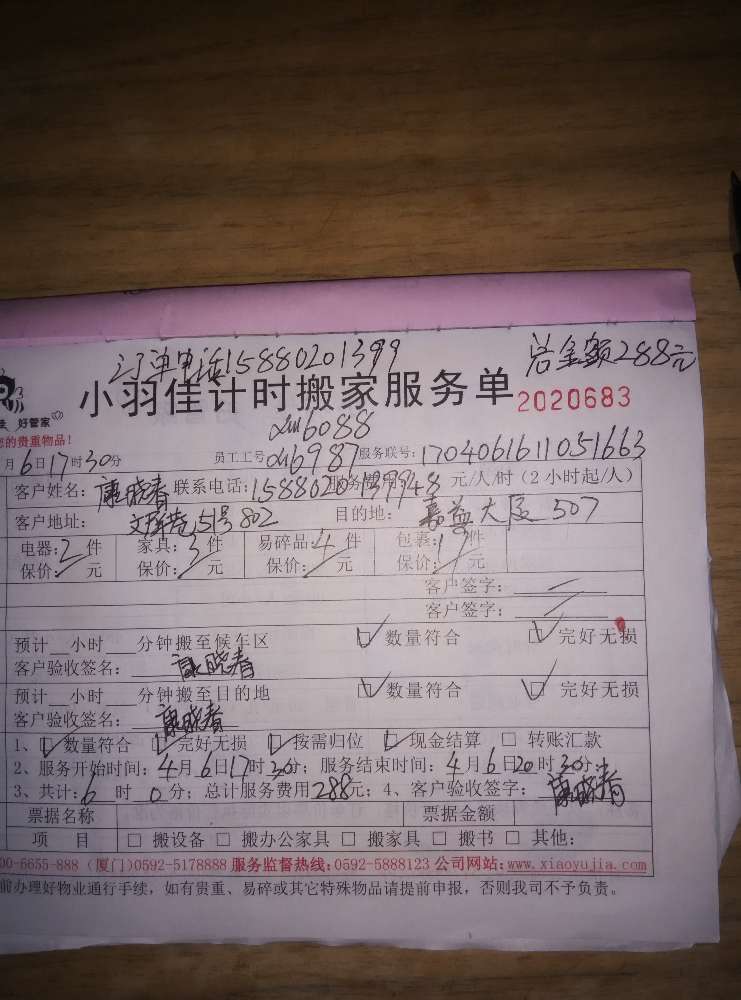 订单电话15880201399 总金额288元
小羽佳计时搬家服务单 2020683
好管家
您的贵重物品！
6088
月6日17时30分 员工工号 6987 服务联号：1704061611051663
客户姓名：康晓春 联系电话：15880201399 48 元/人/时（2小时起/人）
客户地址： 51号802 目的地：嘉益大厦507
电器：2件 家具：3件 易碎品：4件 包裹：1件
保价： 元 保价： 元 保价： 元 保价： 元
客户签字：
客户签字：
预计 小时 分钟搬至候车区 数量符合 完好无损
客户验收签名：康晓春
预计 小时 分钟搬至目的地 数量符合 完好无损
客户验收签名：康晓春
1、 数量符合 完好无损 按需归位 现金结算 □ 转账汇款
2、服务开始时间：4月6日17时30分；服务结束时间：4月6日20时30分；
3、共计：6时0分；总计服务费用288元；4、客户验收签字：康晓春
票据名称 票据金额
项 目 □ 搬设备 □ 搬办公家具 □ 搬家具 □ 搬书 □ 其他：
00-6655-888（厦门）0592-5178888 服务监督热线：0592-5888123 公司网站：www.xiaoyujia.com
前办理好物业通行手续，如有贵重、易碎或其它特殊物品请提前申报，否则我司不予负责。